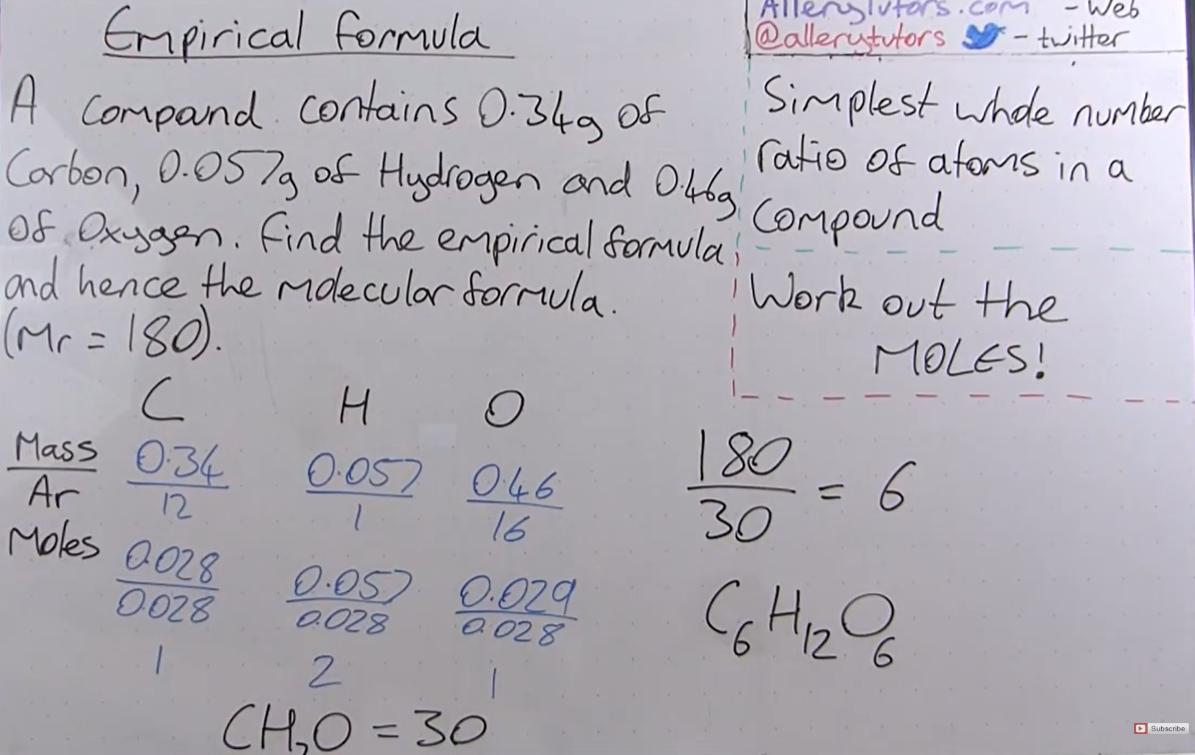 Empirical formula
Allerytutors.com - Web
@allerytutors - twitter
A compound contains 0.34g of
Carbon, 0.057g of Hydrogen and 0.46g
of Oxygen. Find the empirical formula
and hence the molecular formula.
(Mr = 180).
Simplest whole number
ratio of atoms in a
compound
Work out the
MOLES!
C H O
Mass 0.34 0.057 0.46
Ar 12 1 16
Moles 0.028 0.057 0.029
0.028 0.028 0.028
1 2 1
CH₂O = 30
180
30 = 6
C₆H₁₂O₆
Subscribe